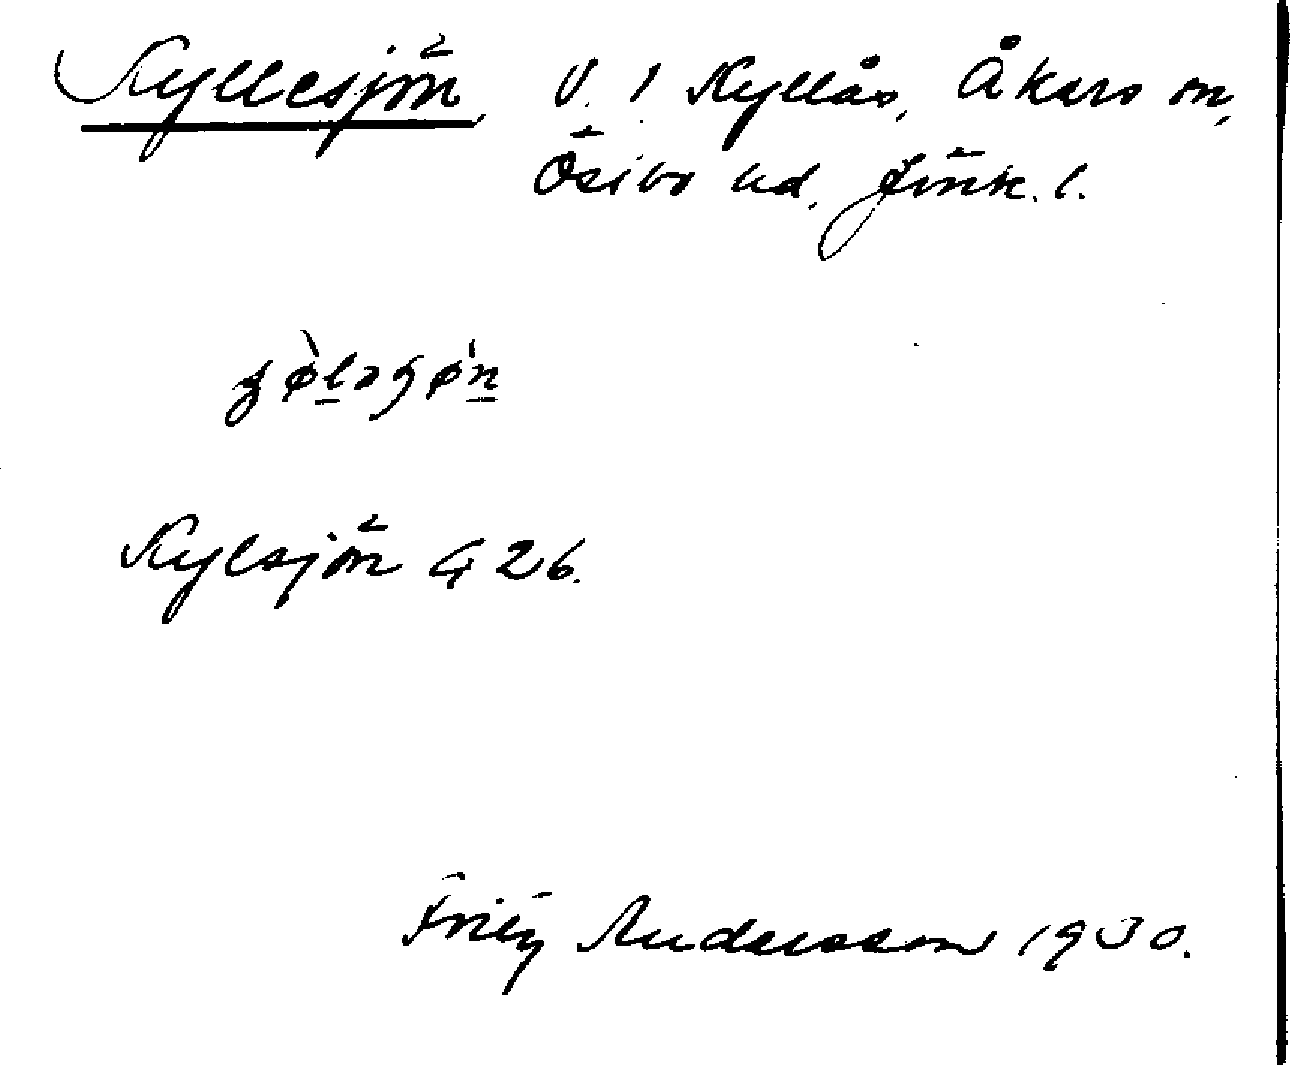 Kyllesjön, V. i Kyllås, Åkers sn,
Östbo hd, Jönk. l.
Kylsjön G 26.
Fritz Andersson 1930.